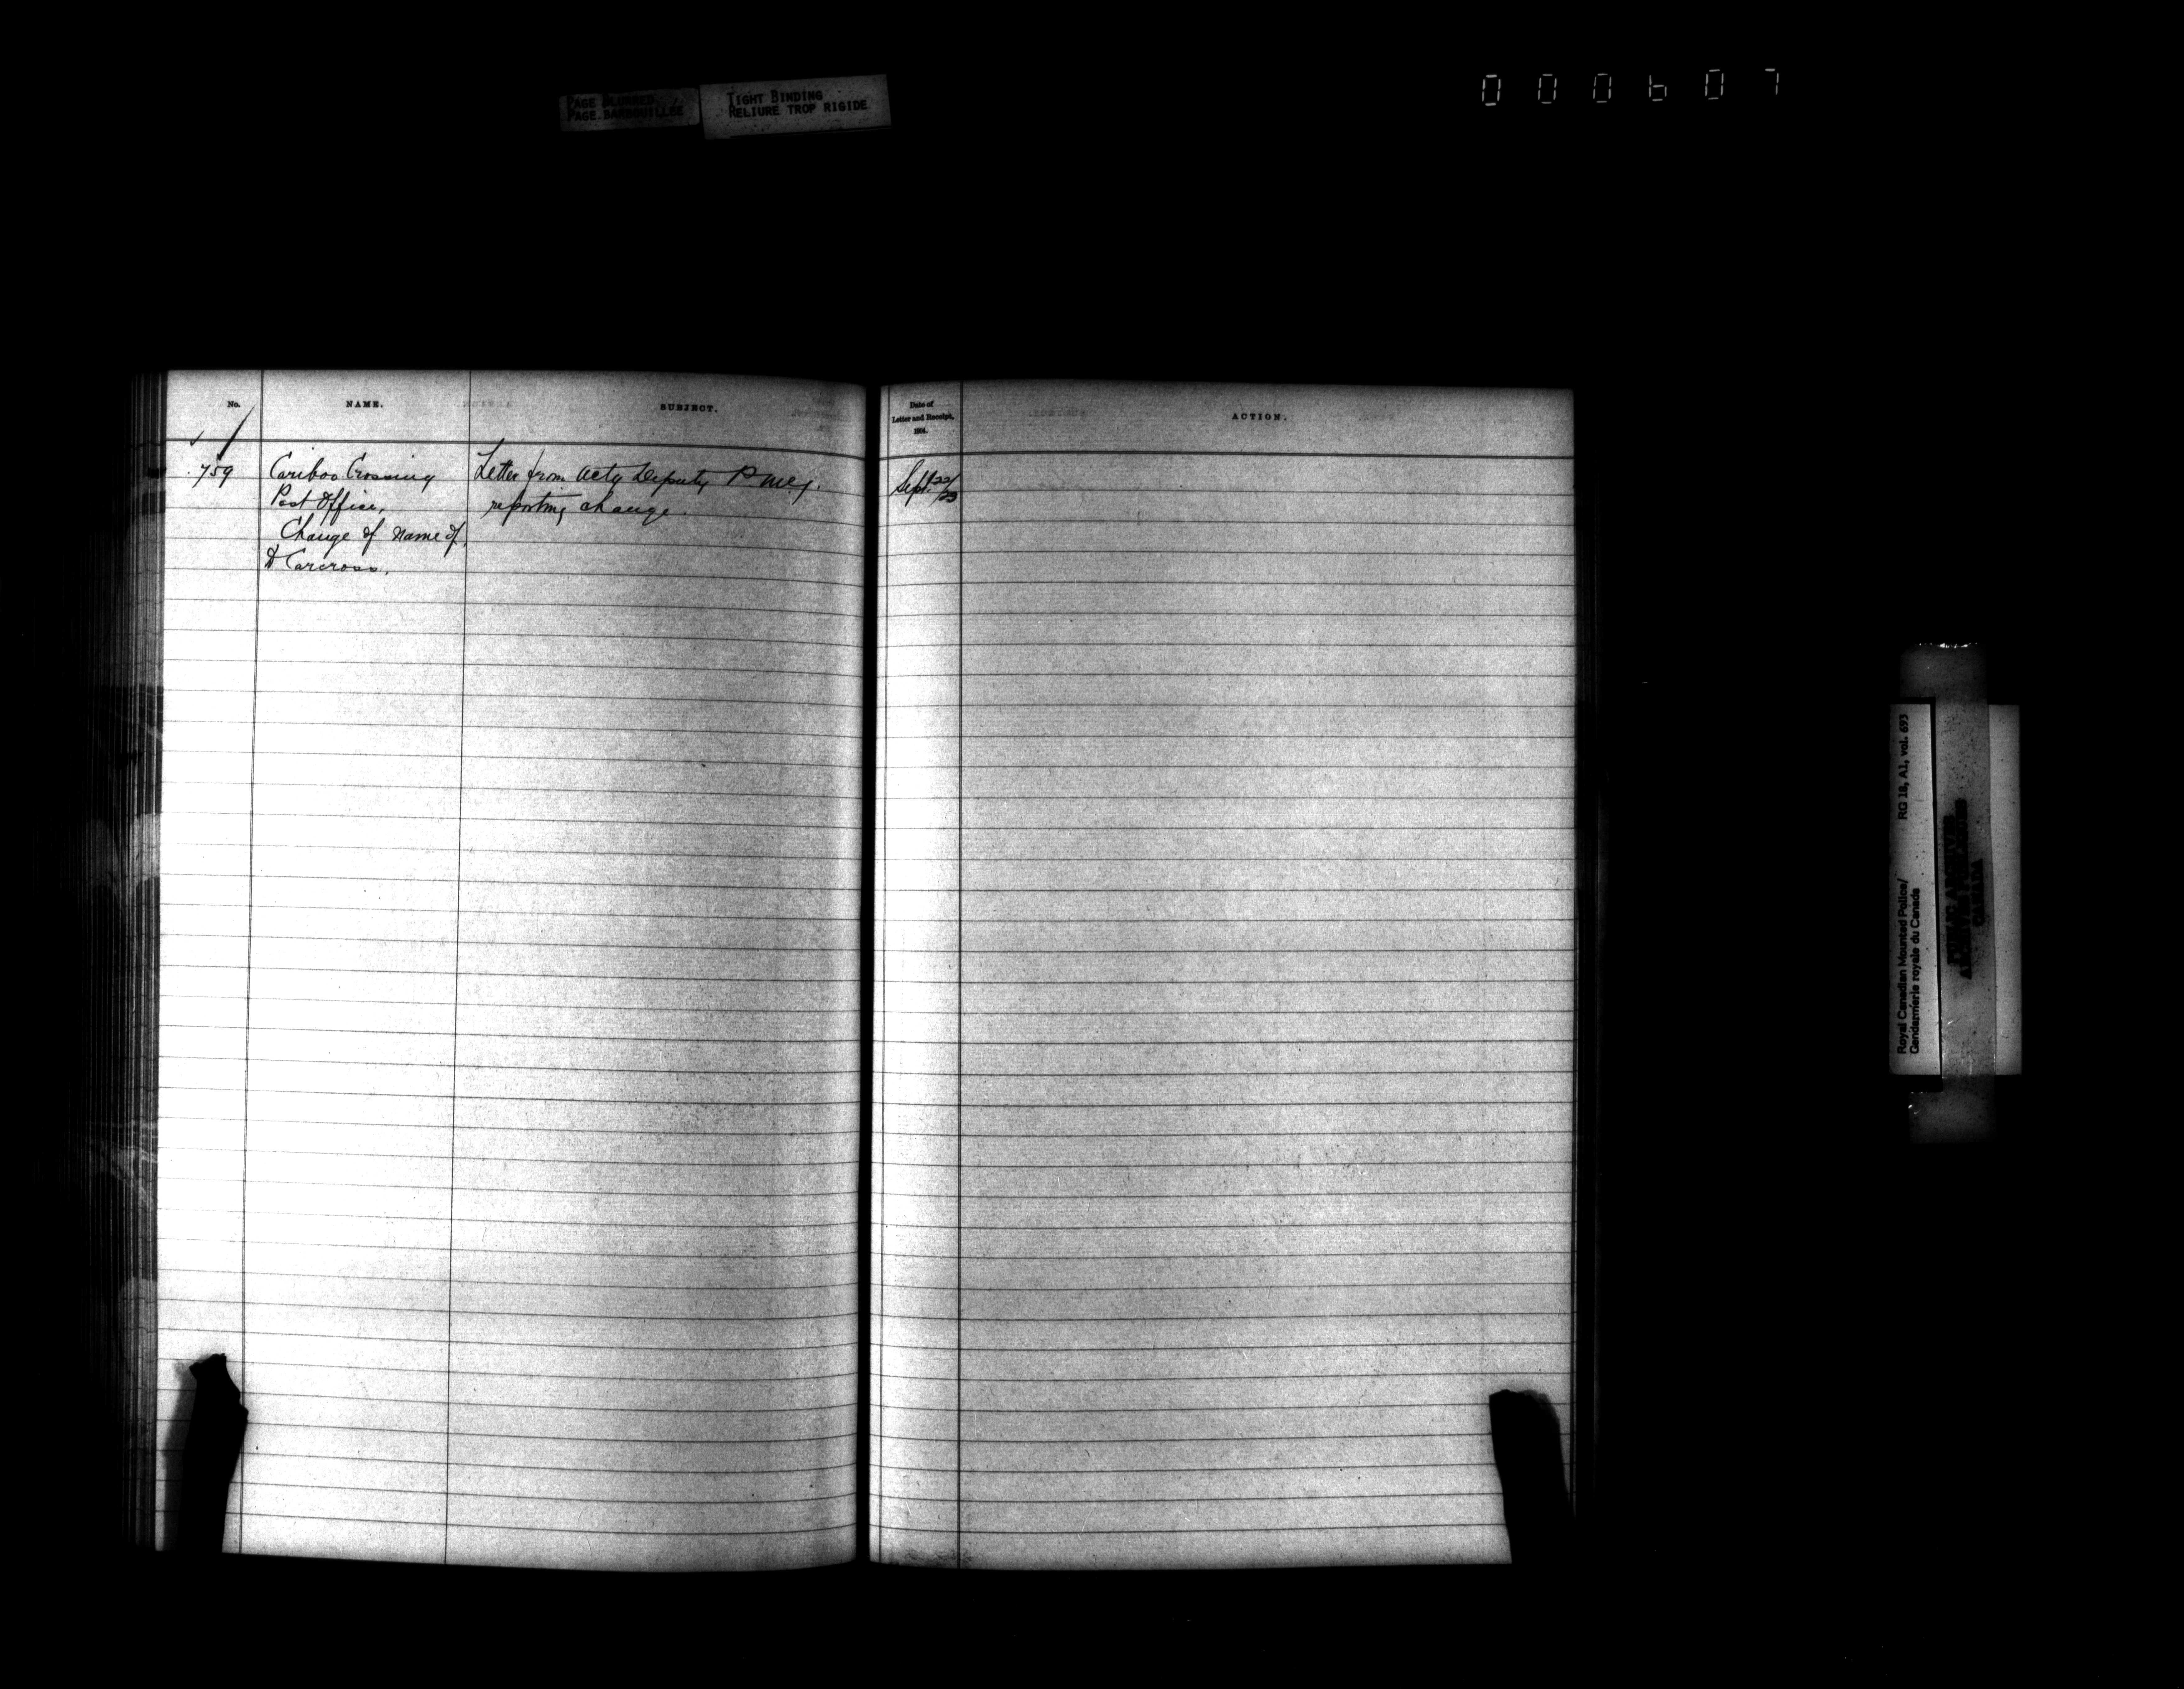 PAGE BLURRED
PAGE BARBOUILLÉE
TIGHT BINDING
RELIURE TROP RIGIDE
000607
No.
NAME.
SUBJECT.
Date of
Letter and Receipt,
ACTION.
759
Cariboo Crossing
Post Office,
Change of name of,
to Carcross.
Letter from Actg Deputy P.M.G.
reporting change.
Sept. 22/23
Royal Canadian Mounted Police/
Gendarmerie royale du Canada
RG 18, A1, vol. 693
PUBLIC ARCHIVES
ARCHIVES PUBLIQUES
CANADA